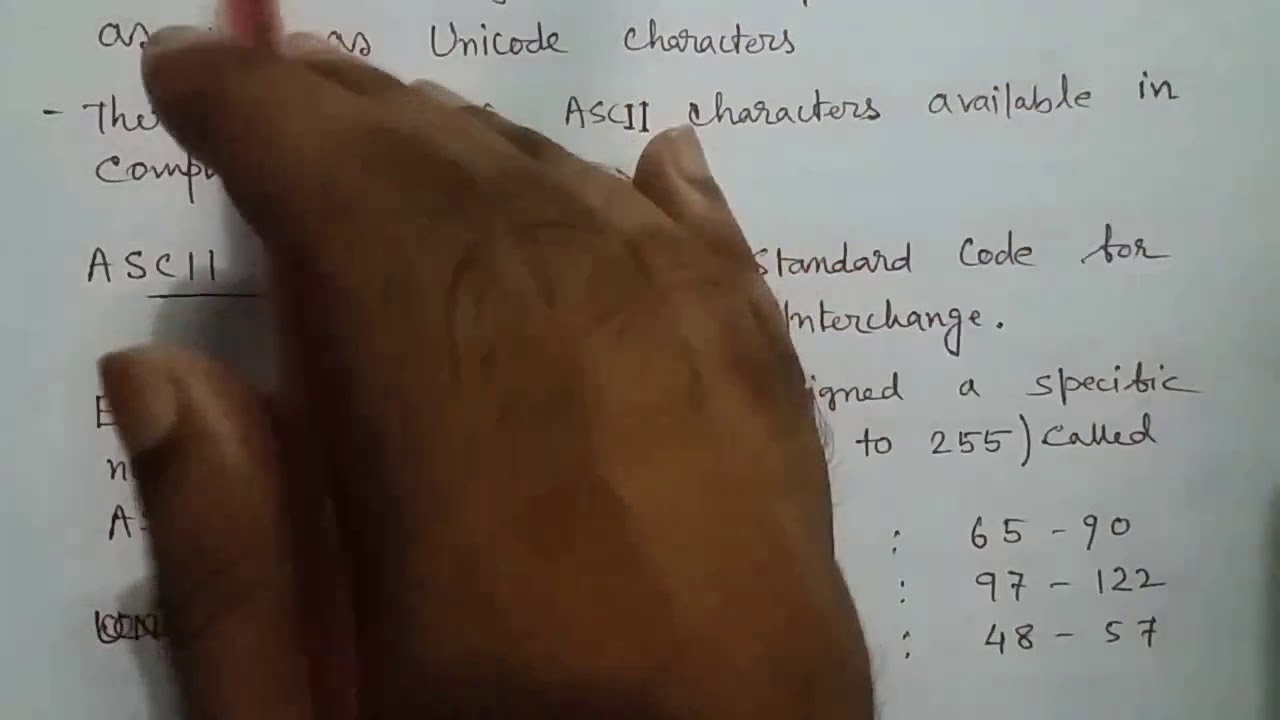 as as Unicode characters
- The ASCII characters available in
Comp
ASCII Standard Code for
Interchange.
igned a specific
to 255) called
: 65 - 90
: 97 - 122
: 48 - 57